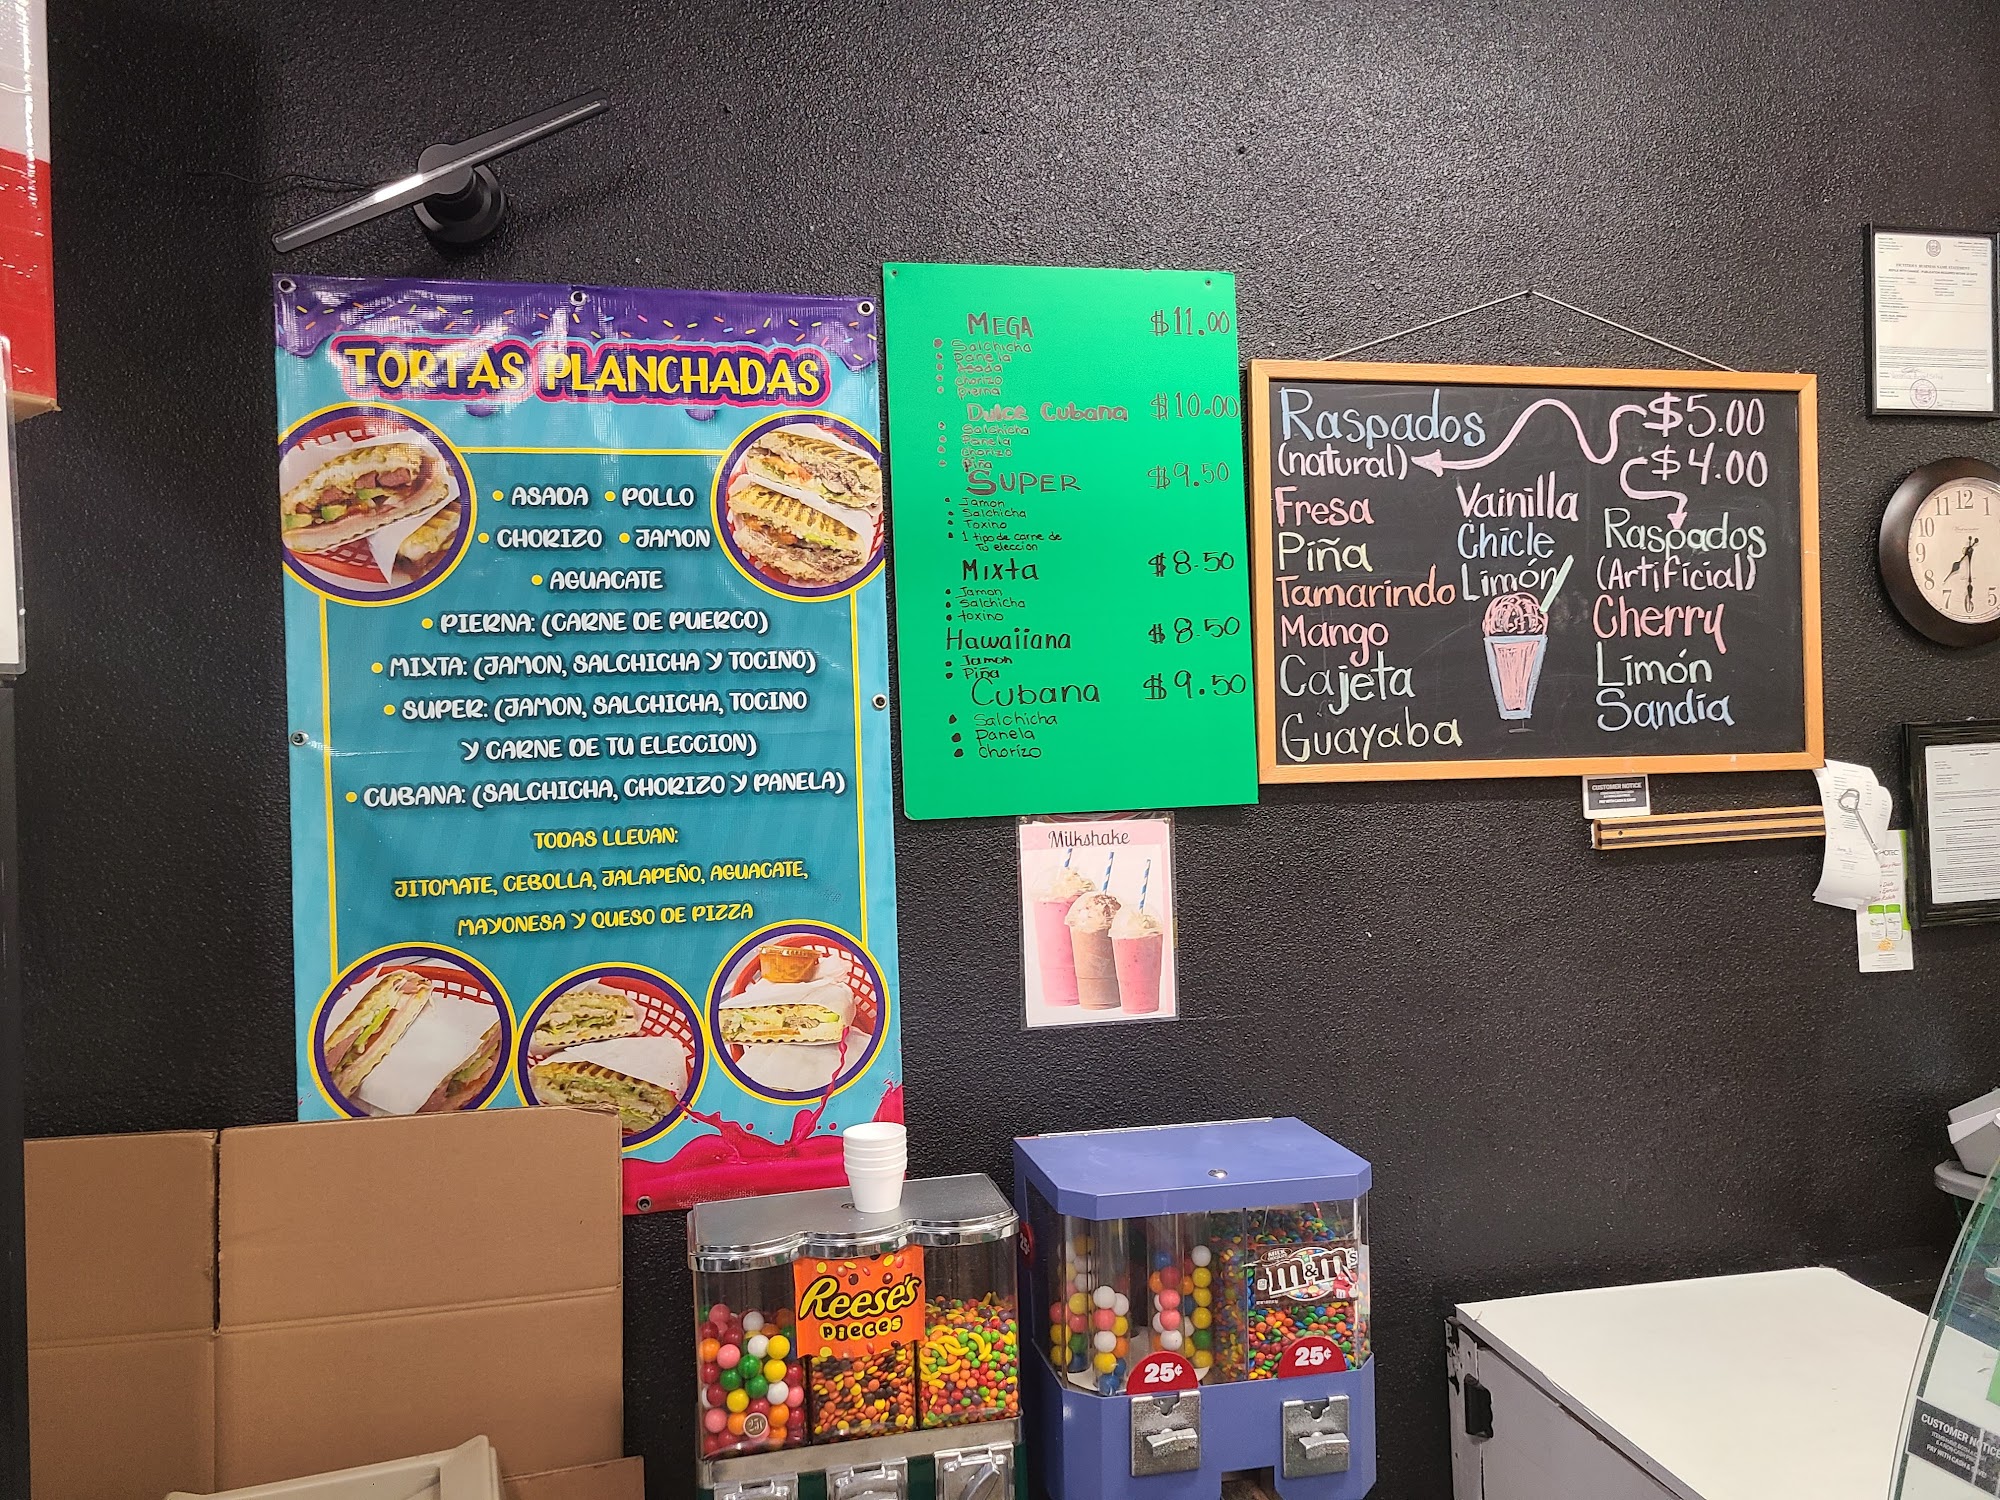 TORTAS PLANCHADAS
• ASADA • POLLO
• CHORIZO • JAMON
• AGUACATE
• PIERNA: (CARNE DE PUERCO)
• MIXTA: (JAMON, SALCHICHA Y TOCINO)
• SUPER: (JAMON, SALCHICHA, TOCINO
Y CARNE DE TU ELECCION)
• CUBANA: (SALCHICHA, CHORIZO Y PANELA)
TODAS LLEVAN:
JITOMATE, CEBOLLA, JALAPEÑO, AGUACATE,
MAYONESA Y QUESO DE PIZZA
MEGA $11.00
• Salchicha
• Panela
• Asada
• Chorizo
• Pierna
Dulce Cubana $10.00
• Salchicha
• Panela
• Chorizo
• Piña
SUPER $9.50
• Jamon
• Salchicha
• Toxino
• 1 tipo de carne de
Tu eleccion
Mixta $8.50
• Jamon
• Salchicha
• toxino
Hawaiiana $8.50
• Jamon
• Piña
Cubana $9.50
• Salchicha
• Panela
• Chorizo
Milkshake
Raspados $5.00
(natural) $4.00
Fresa
Piña
Tamarindo
Mango
Cajeta
Guayaba
Vainilla
Chicle
Limón
Raspados
(Artificial)
Cherry
Límón
Sandía
CUSTOMER NOTICE
PAY WITH CASH
11 12 1
10
9
8
7 6 5
Reese's
PIECES
25¢
MILK
m&m's
25¢
25¢
CUSTOMER NOTICE
PAY WITH CASH &